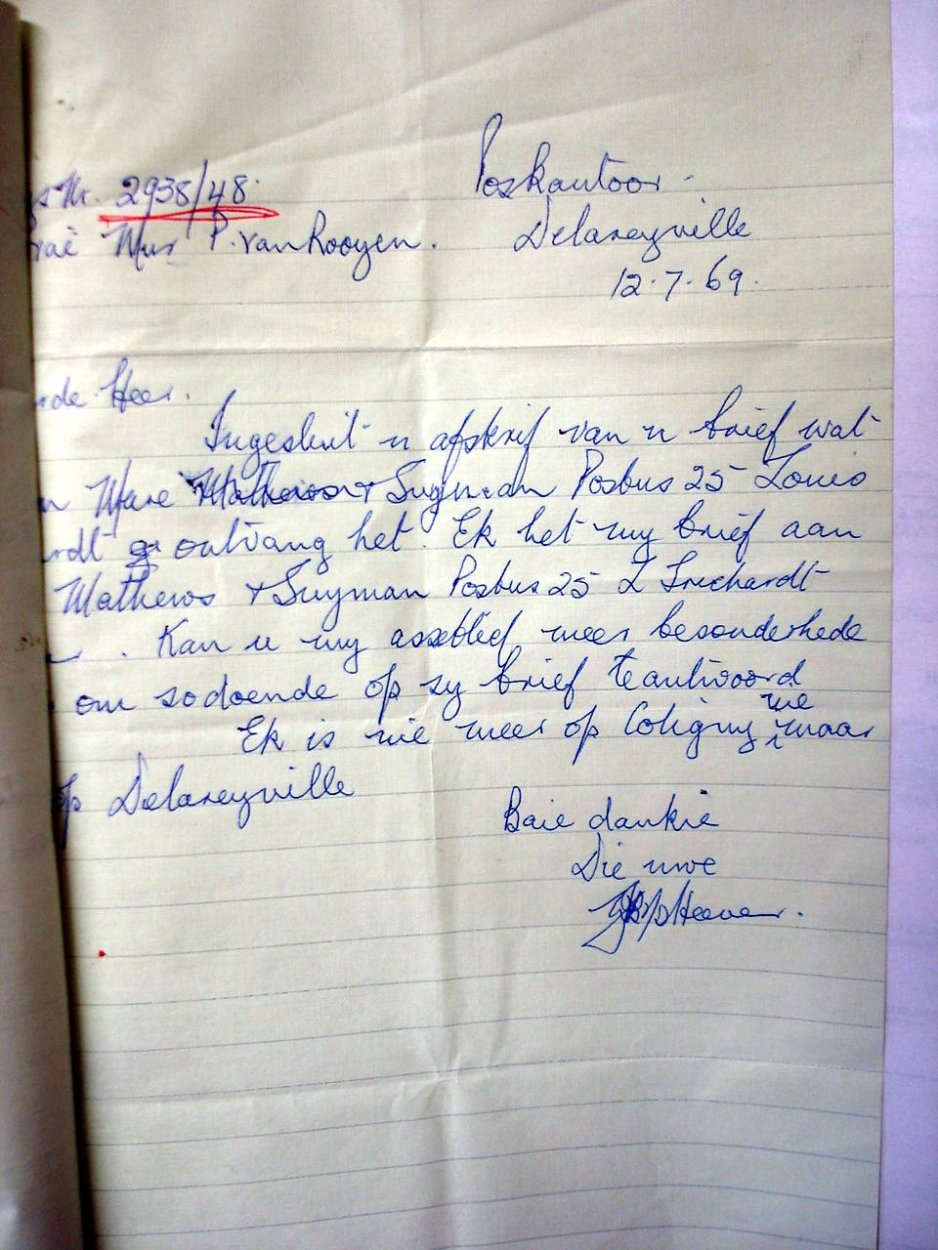 Poskantoor.
Nr. 2938/48.
Delareyville
Mnr P. van Rooyen.
12.7.69.
de Heer.
Ingesluit n afskrif van n brief wat
n Mare Mathews + Snyman Posbus 25 Louis
rdt ontvang het. Ek het my brief aan
Mathews + Snyman Posbus 25 L Trichardt
. Kan u my asseblief meer besonderhede
om sodoende op sy brief te antwoord
Ek is nie meer op Coligny nie maar
p Delareyville
Baie dankie
Die uwe